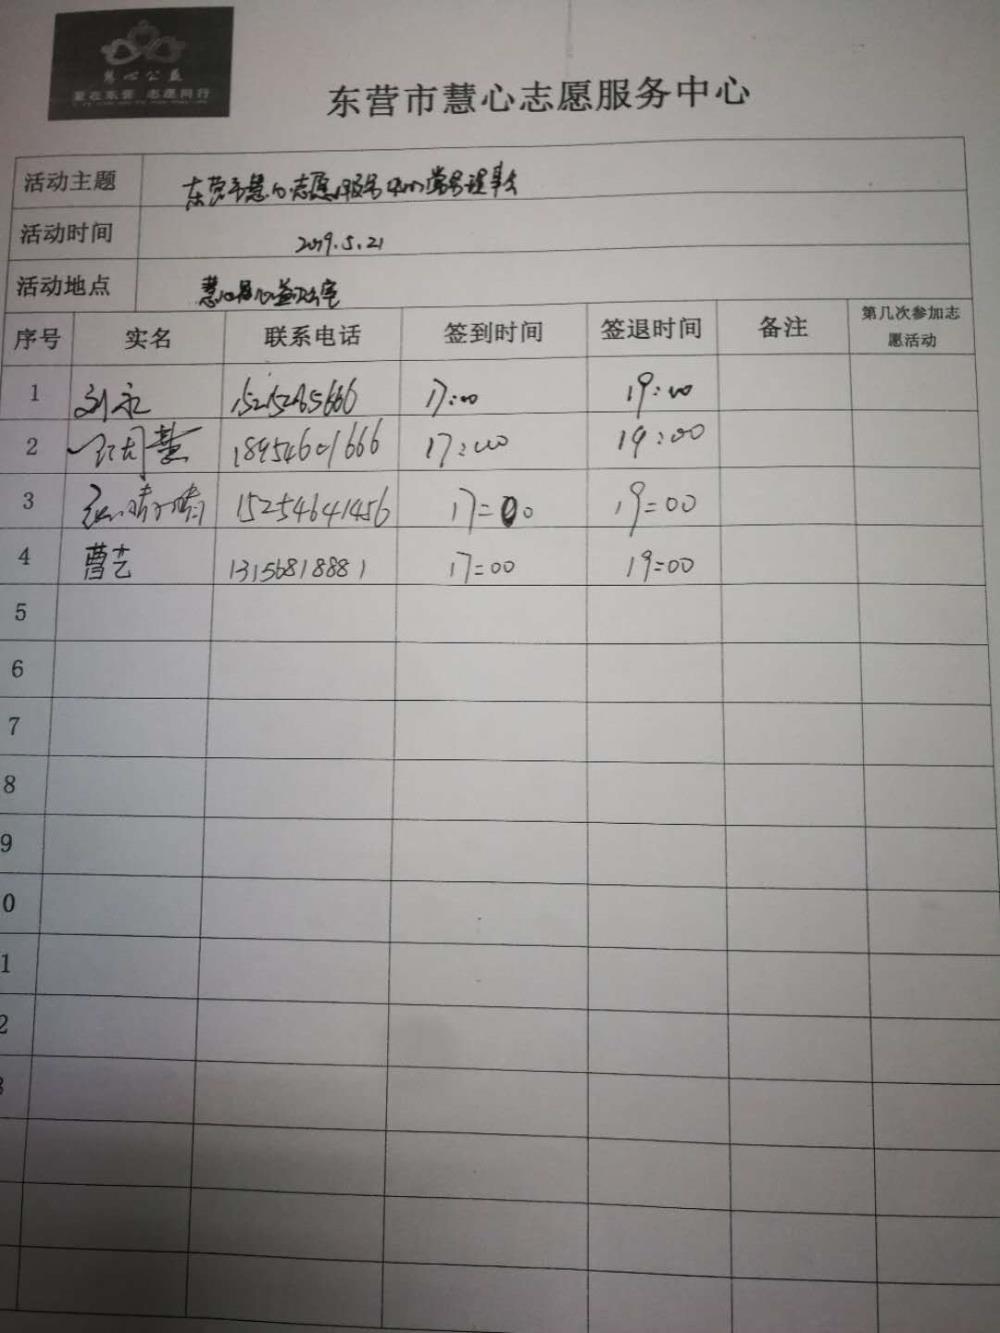 慧心公益
爱在东营 志愿同行
东营市慧心志愿服务中心
活动主题 东营市慧心志愿服务中心常务理事会
活动时间 2019.5.21
活动地点 慧心公益办公室
序号 实名 联系电话 签到时间 签退时间 备注 第几次参加志
愿活动
1 刘永 17:00 19:00
2 慧 18954601666 17:00 19:00
3 15254641456 17=00 19=00
4 曹艺 13156818881 17=00 19=00
5
6
7
8
9
0
1
2